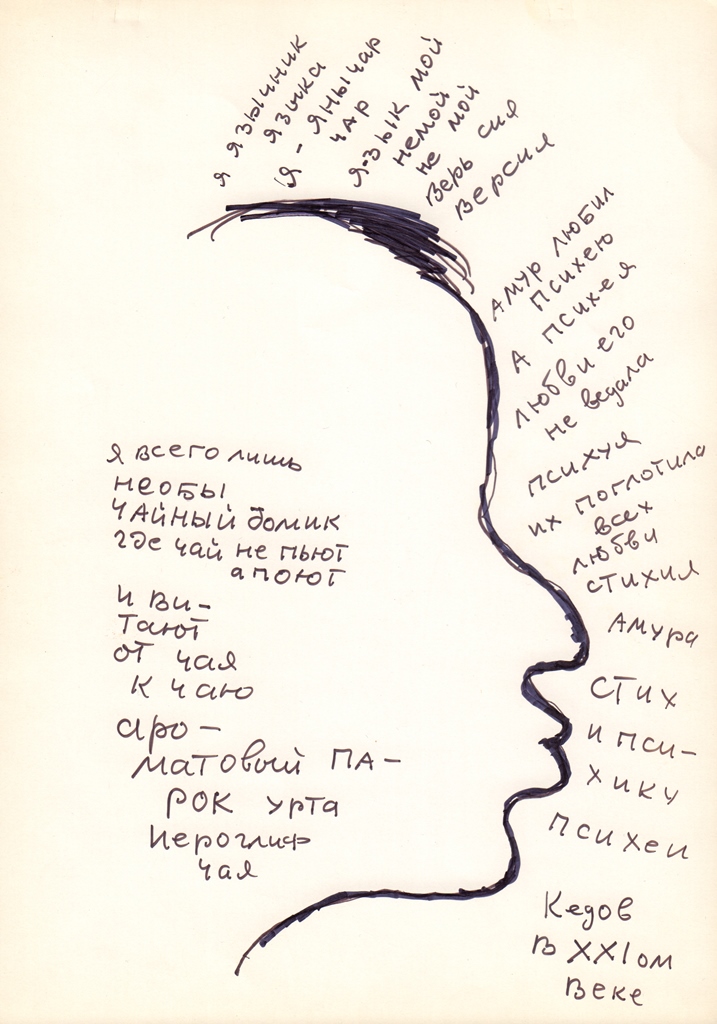 я язычник
языка
я - янычар
чар
я-зык мой
немой
не мой
верь сия
версия
Амур любил
Психею
А психея
любви его
не ведала
психуя
их поглотила
всех
любви
стихия
Амура
стих
и пси-
хику
психеи
я всего лишь
необы
чайный домик
где чай не пьют
а поют
и ви-
тают
от чая
к чаю
аро-
матовый па-
рок урта
иероглиф
чая
Кедов
в XXIом
веке